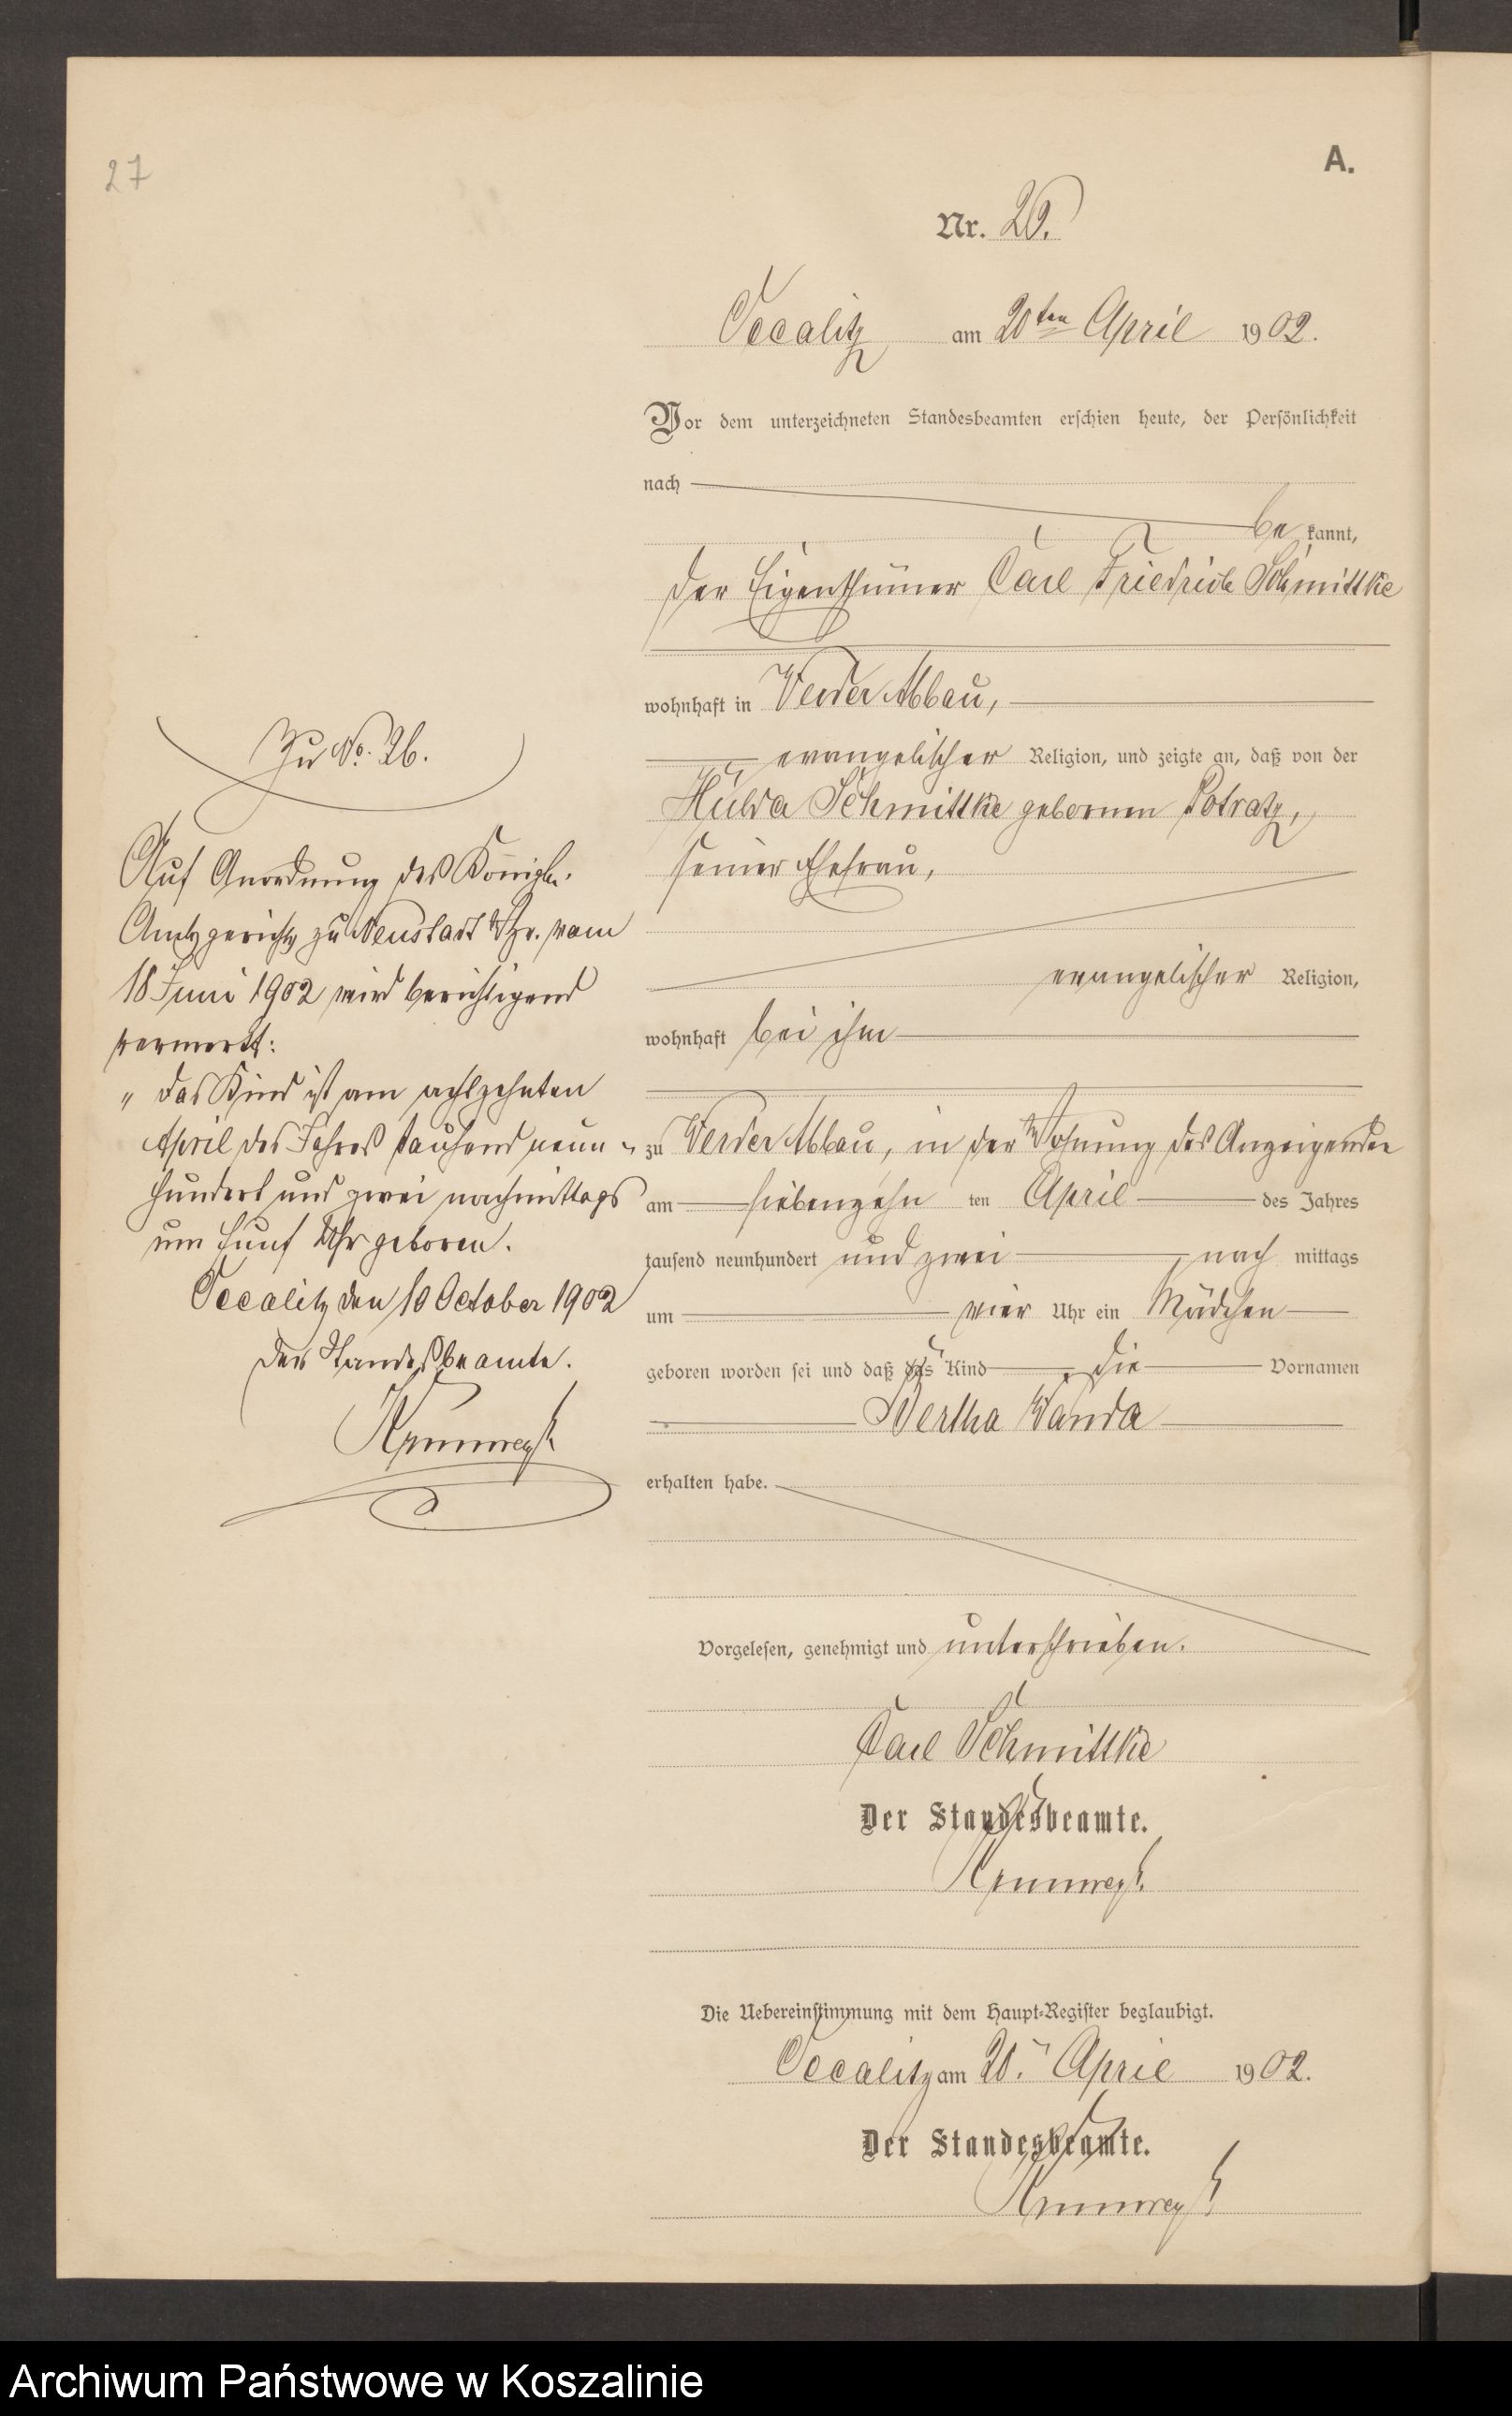 27
A.
Nr. 26.
Occalitz am 20ten April 1902.
Vor dem unterzeichneten Standesbeamten erschien heute, der Persönlichkeit
nach
bekannt,
der Eigenthümer Carl Friedrich Schmittke
wohnhaft in Werder Abbau,
evangelischer Religion, und zeigte an, daß von der
Hulda Schmittke gebornen Potratz,
seiner Ehefrau,
evangelischer Religion,
wohnhaft bei ihm
zu Werder Abbau, in der Wohnung des Anzeigenden
am siebenzehn ten April des Jahres
tausend neunhundert und zwei nach mittags
um vier Uhr ein Mädchen
geboren worden sei und daß das Kind die Vornamen
Bertha Wanda
erhalten habe.
Vorgelesen, genehmigt und unterschrieben.
Carl Schmittke
Der Standesbeamte.
Die Uebereinstimmung mit dem Haupt-Register beglaubigt.
Occalitz am 20. April 1902.
Der Standesbeamte.
Zu No. 26.
Auf Anordnung des Königl.
Amtsgerichts zu Neustadt Wpr. vom
18 Juni 1902 wird berichtigend
vermerkt:
„ das Kind ist am achtzehnten
April des Jahres tausend neun-
hundert und zwei nachmittags
um fünf Uhr geboren.
Occalitz den 10 October 1902
Der Standesbeamte.
Archiwum Państwowe w Koszalinie